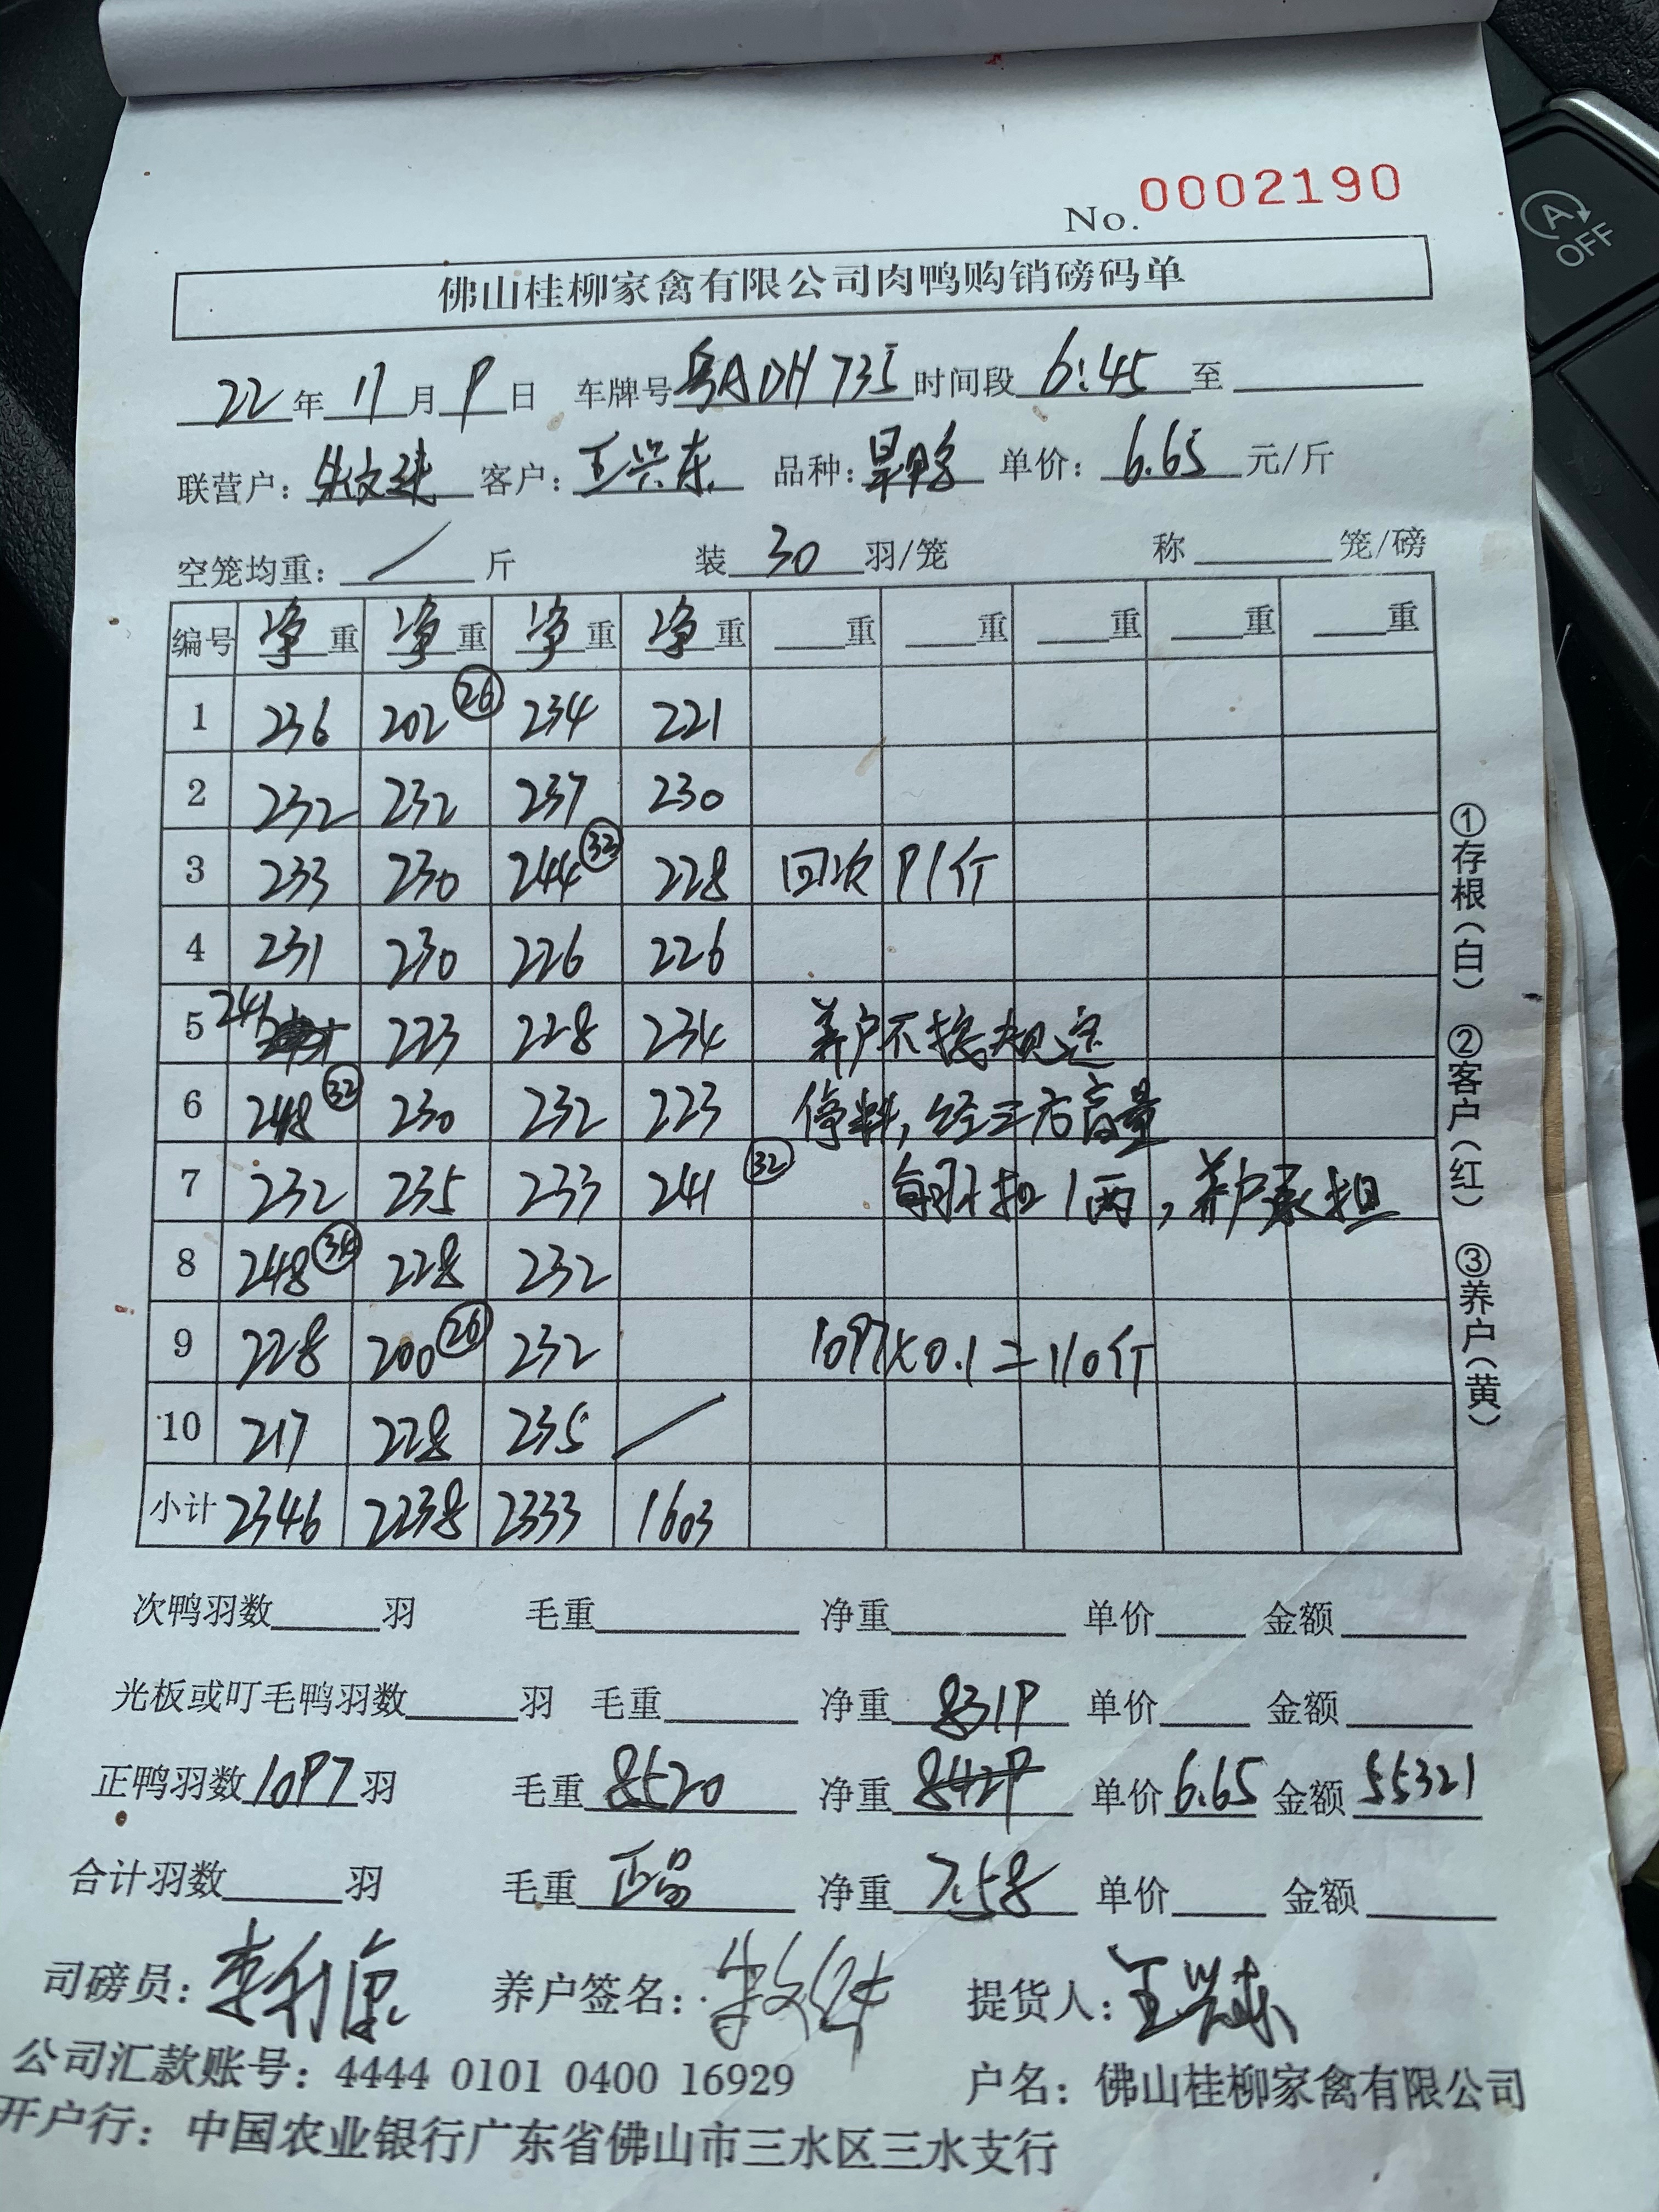 No. 0002190
佛山桂柳家禽有限公司肉鸭购销磅码单
22年11月9日 车牌号粤ADH735 时间段6:45至
联营户:朱文建 客户:王兴东 品种:旱鸭 单价:6.65元/斤
空笼均重:/斤 装30羽/笼 称 笼/磅
编号 净重 净重 净重 净重 重 重 重 重 重
1 236 202 26 234 221
2 232 232 237 230
3 233 230 244 33 228 回次 91斤
4 231 230 226 226
5 241 223 228 234 养户不按规定
6 248 32 230 232 223 停料,经三方商量
7 232 235 233 241 32 每羽扣1两,养户承担
8 248 34 228 232
9 228 200 26 232 1097×0.1=110斤
10 217 228 235 /
小计 2346 2238 2333 1603
①存根(白) ②客户(红) ③养户(黄)
次鸭羽数 羽 毛重 净重 单价 金额
光板或叮毛鸭羽数 羽 毛重 净重8319 单价 金额
正鸭羽数1097羽 毛重8520 净重8429 单价6.65 金额55321
合计羽数 羽 毛重 净重7.58 单价 金额
司磅员: 养户签名: 提货人:王兴东
公司汇款账号:4444 0101 0400 16929 户名:佛山桂柳家禽有限公司
开户行:中国农业银行广东省佛山市三水区三水支行
A OFF